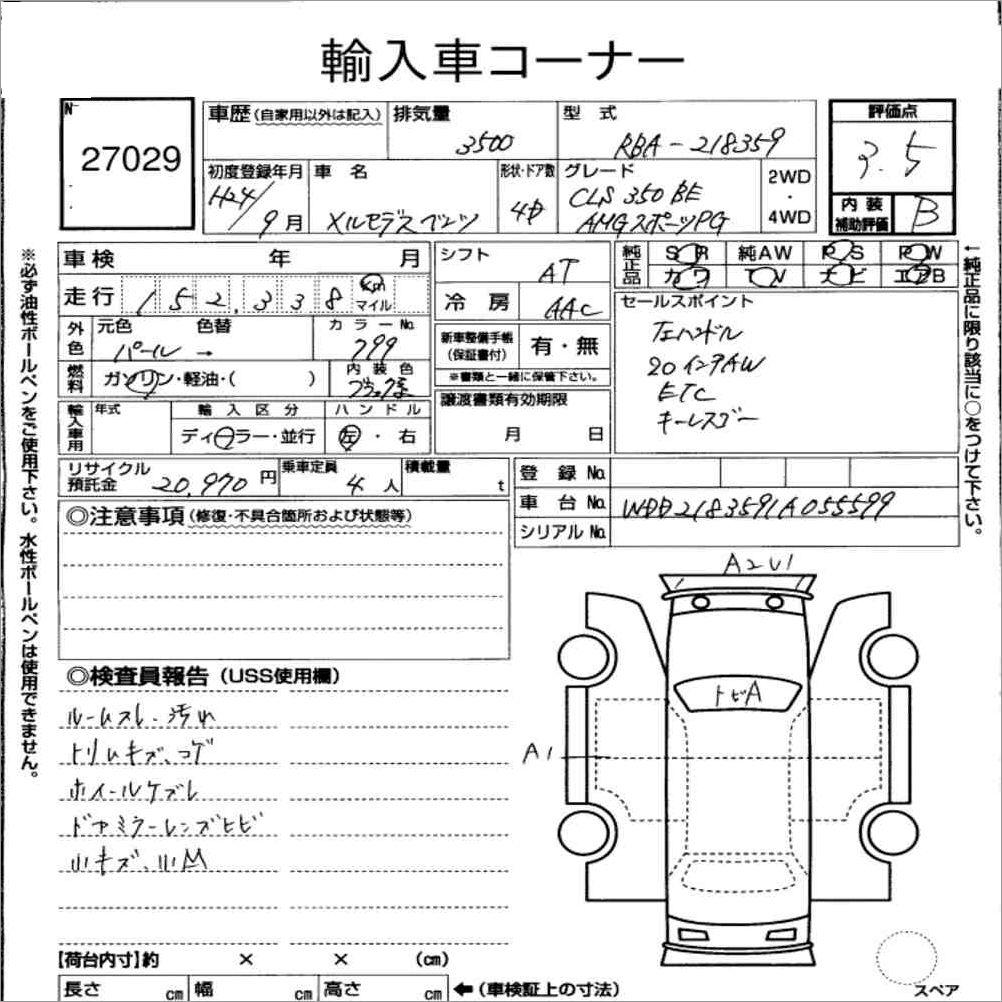 輸入車コーナー
No
27029
車歴 (自家用以外は記入)
排気量
3500
型式
RBA-218359
評価点
3.5
初度登録年月
H24/9月
車名
メルセデスベンツ
形状・ドア数
4D
グレード
CLS 350 BE
AMGスポーツPG
2WD
・
4WD
内装
補助評価
B
車検 年 月
走行 152,338 km
マイル
シフト
AT
冷房
AAC
純正品
SR 純AW PS PW
カワ TV ナビ エアB
外色
元色 色替
パール →
カラーNo.
799
新車整備手帳
(保証書付)
有・無
※書類と一緒に保管下さい。
セールスポイント
左ハンドル
20インチAW
ETC
キーレスゴー
燃料
ガソリン・軽油・( )
内装色
輸入車用
年式
輸入区分
ディーラー・並行
ハンドル
左・右
譲渡書類有効期限
月 日
リサイクル
預託金
20,970円
乗車定員
4人
積載量
t
登録No.
車台No. WDD2183591A055599
シリアルNo.
◎注意事項 (修復・不具合箇所および状態等)
◎検査員報告 (USS使用欄)
ルームスレ、汚れ
トリムキズ、コゲ
ホイールケズレ
ドアミラーレンズヒビ
小キズ、小M
A2U1
トビA
A1
【荷台内寸】約 × × (cm)
長さ cm 幅 cm 高さ cm
←(車検証上の寸法)
スペア
※必ず油性ボールペンをご使用下さい。水性ボールペンは使用できません。
←純正品に限り該当に○をつけて下さい。